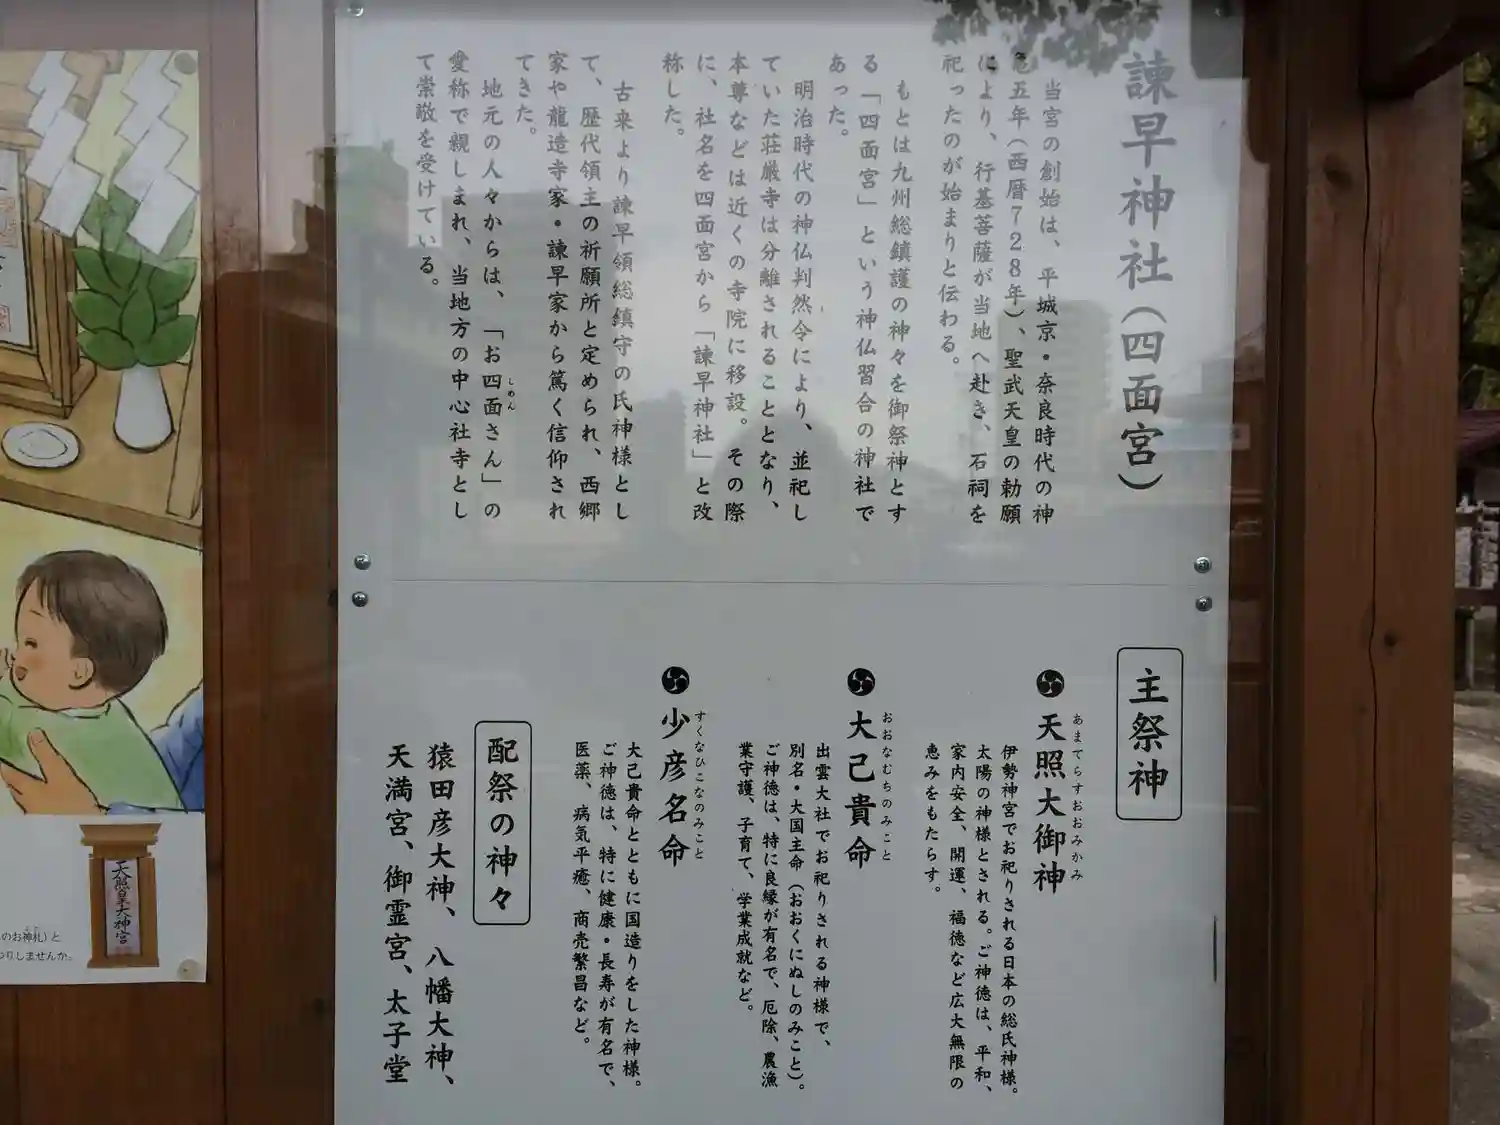 諫早神社(四面宮)
当宮の創始は、平城京・奈良時代の神
亀五年(西暦728年)、聖武天皇の勅願
により、行基菩薩が当地へ赴き、石祠を
祀ったのが始まりと伝わる。
もとは九州総鎮護の神々を御祭神とす
る「四面宮」という神仏習合の神社で
あった。
明治時代の神仏判然令により、並祀し
ていた荘厳寺は分離されることとなり、
本尊などは近くの寺院に移設。その際
に、社名を四面宮から「諫早神社」と改
称した。
古来より諫早領総鎮守の氏神様とし
て、歴代領主の祈願所と定められ、西郷
家や龍造寺家・諫早家から篤く信仰され
てきた。
地元の人々からは、「お四面さん」の
しめん
愛称で親しまれ、当地方の中心社寺とし
て崇敬を受けている。
主祭神
天照大御神
あまてらすおおみかみ
伊勢神宮でお祀りされる日本の総氏神様。
太陽の神様とされる。ご神徳は、平和、
家内安全、開運、福徳など広大無限の
恵みをもたらす。
大己貴命
おおなむちのみこと
出雲大社でお祀りされる神様で、
別名・大国主命(おおくにぬしのみこと)。
ご神徳は、特に良縁が有名で、厄除、農漁
業守護、子育て、学業成就など。
少彦名命
すくなひこなのみこと
大己貴命とともに国造りをした神様。
ご神徳は、特に健康・長寿が有名で、
医薬、病気平癒、商売繁昌など。
配祭の神々
猿田彦大神、八幡大神、
天満宮、御霊宮、太子堂
天照皇大神宮
のお神札)と
つりしませんか。